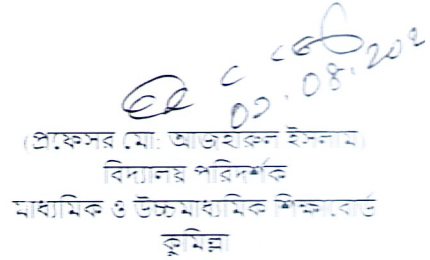 (প্রফেসর মো: আজহারুল ইসলাম)
বিদ্যালয় পরিদর্শক
মাধ্যমিক ও উচ্চমাধ্যমিক শিক্ষাবোর্ড
কুমিল্লা